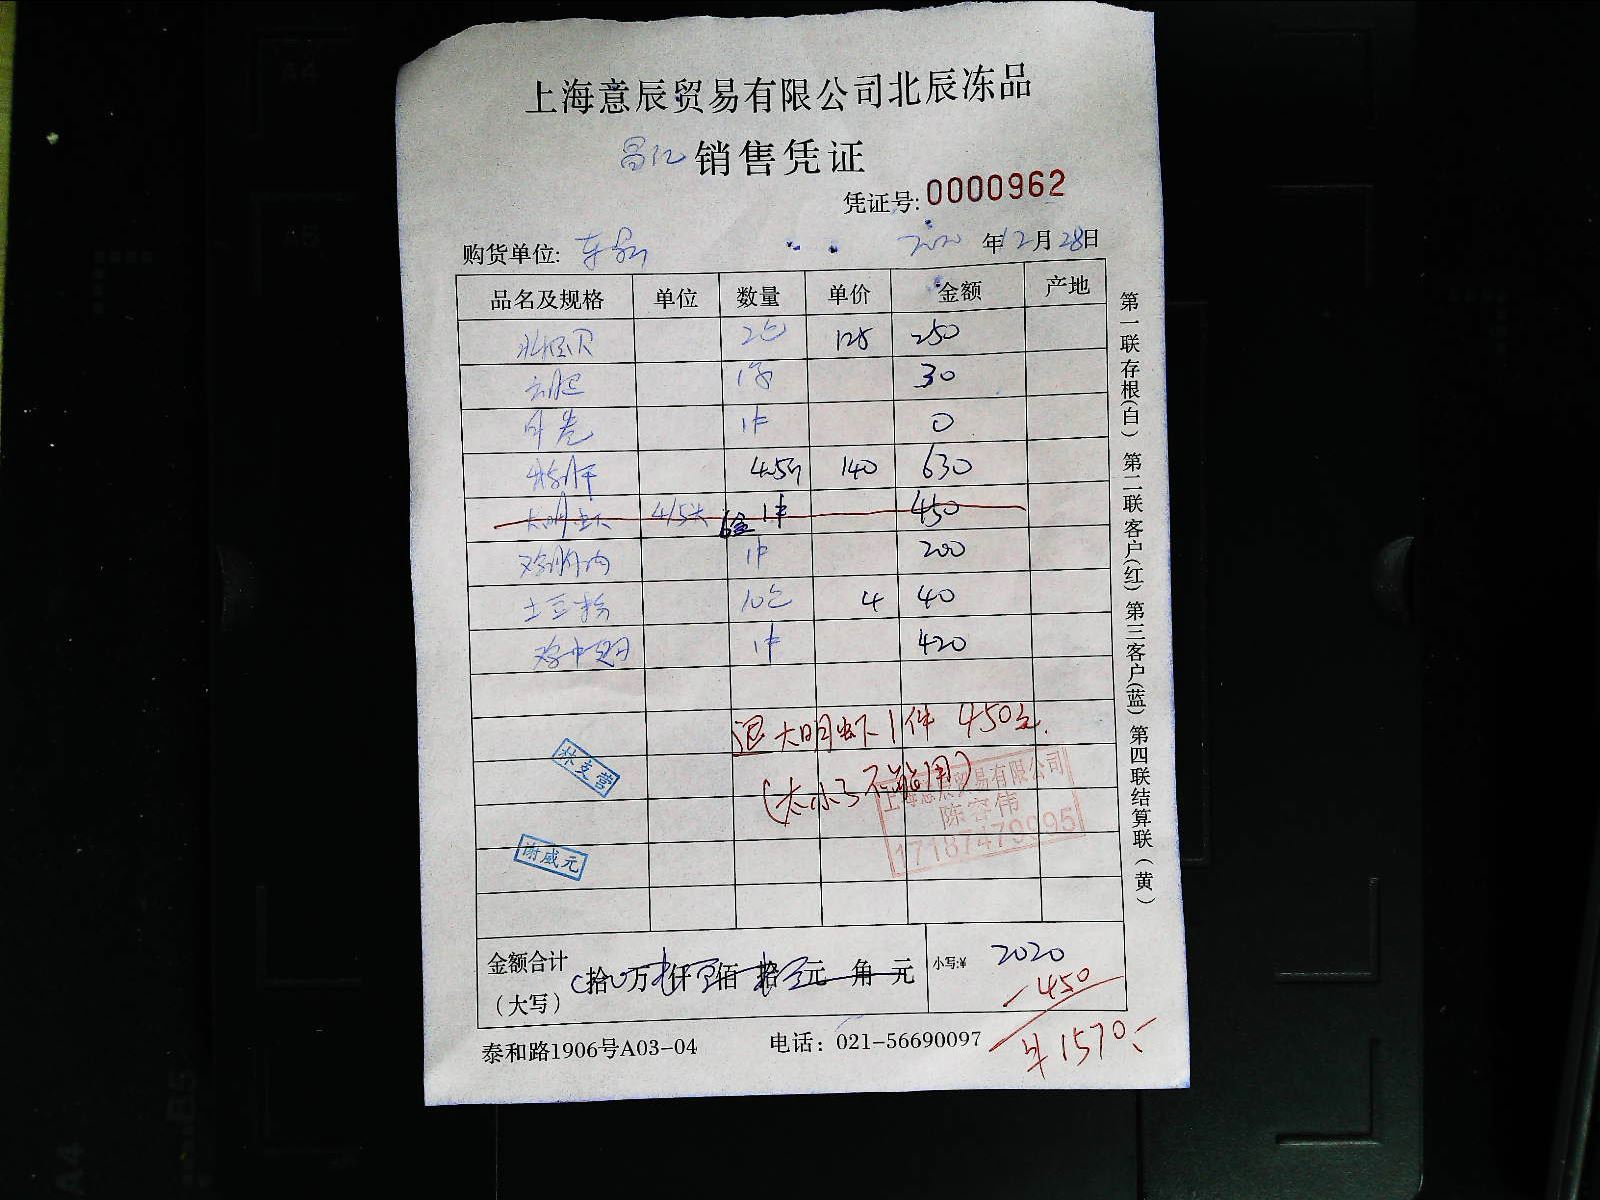 上海意辰贸易有限公司北辰冻品
昌亿 销售凭证
凭证号: 0000962
购货单位: 2020 年 12 月 28 日
品名及规格 单位 数量 单价 金额 产地
2包 125 250
1条 30
1件 0
4.5斤 140 630
大明虾 4/5头 6盒 1件 450
1件 200
土豆粉 10包 4 40
鸡中翅 1件 420
退大明虾1件 450元.
(太小了不能用)
林支营
上海意辰贸易有限公司
陈容伟
17187479995
谢威元
金额合计
(大写)
拾 万 仟 佰 拾 元 角 元
小写:¥ 2020
-450
¥1570.-
泰和路1906号A03-04 电话: 021-56690097
第一联存根(白) 第二联客户(红) 第三客户(蓝) 第四联结算联(黄)